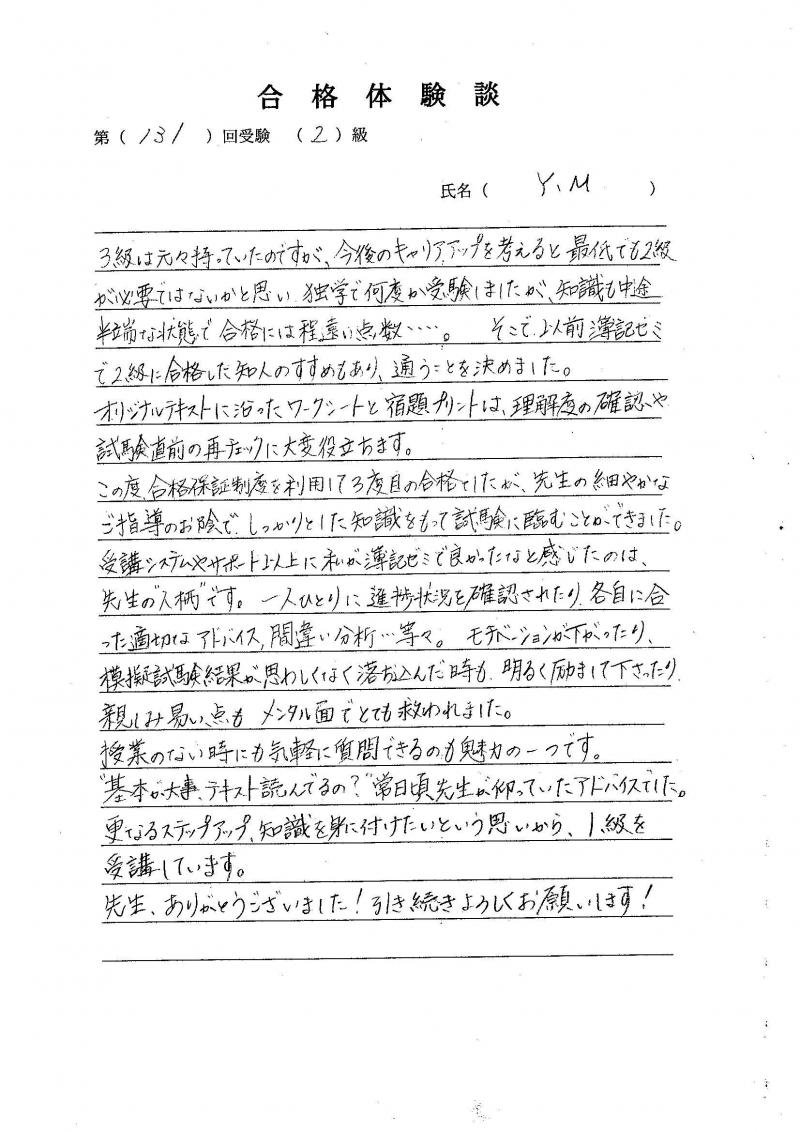 合格体験談
第（131）回受験 （2）級
氏名（ Y.M ）
3級は元々持っていたのですが、今後のキャリアアップを考えると最低でも2級
が必要ではないかと思い、独学で何度か受験しましたが、知識も中途
半端な状態で合格には程遠い点数……。 そこで、以前簿記ゼミ
で2級に合格した知人のすすめもあり、通うことを決めました。
オリジナルテキストに沿ったワークシートと宿題プリントは、理解度の確認や
試験直前の再チェックに大変役立ちます。
この度、合格保証制度を利用して3度目の合格でしたが、先生の細やかな
ご指導のお陰で、しっかりとした知識をもって試験に臨むことができました。
受講システムやサポート以上に私が簿記ゼミで良かったなと感じたのは、
先生の"人柄"です。 一人ひとりに進捗状況を確認されたり、各自に合
った適切なアドバイス、間違い分析…等々。 モチベーションが下がったり、
模擬試験結果が思わしくなく落ち込んだ時も、明るく励まして下さったり、
親しみ易い点も メンタル面でとても救われました。
授業のない時にも気軽に質問できるのも魅力の一つです。
"基本が大事、テキスト読んでるの?"常日頃先生が仰っていたアドバイスでした。
更なるステップアップ、知識を身に付けたいという思いから、1級を
受講しています。
先生、ありがとうございました!引き続きよろしくお願いします!